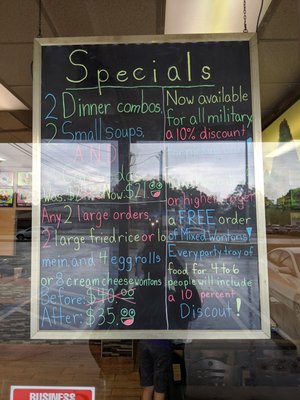 Specials
2 Dinner combos,
2 Small soups,
AND
Was: Now: $21
Any 2 large orders,
2 large fried rice or lo
mein, and 4 egg rolls
or 8 cream cheese wontons
Before: $40.00
After: $35.
Now available
for all military
a 10% discount
or higher
a FREE order
of Mixed wontons!
Every party tray of
food for 4 to 6
people will include
a 10 percent
Discout!
BUSINESS